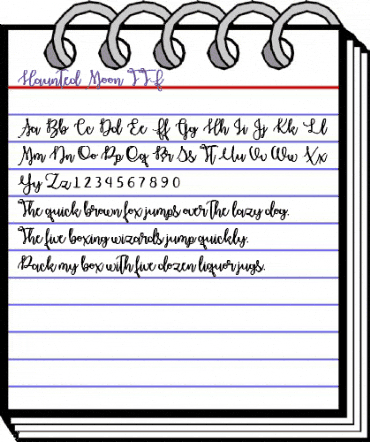 Haunted Moon TTF
Aa Bb Cc Dd Ee Ff Gg Hh Ii Jj Kk Ll
Mm Nn Oo Pp Qq Rr Ss Tt Uu Vv Ww Xx
Yy Zz 1 2 3 4 5 6 7 8 9 0
The quick brown fox jumps over the lazy dog.
The five boxing wizards jump quickly.
Pack my box with five dozen liquor jugs.